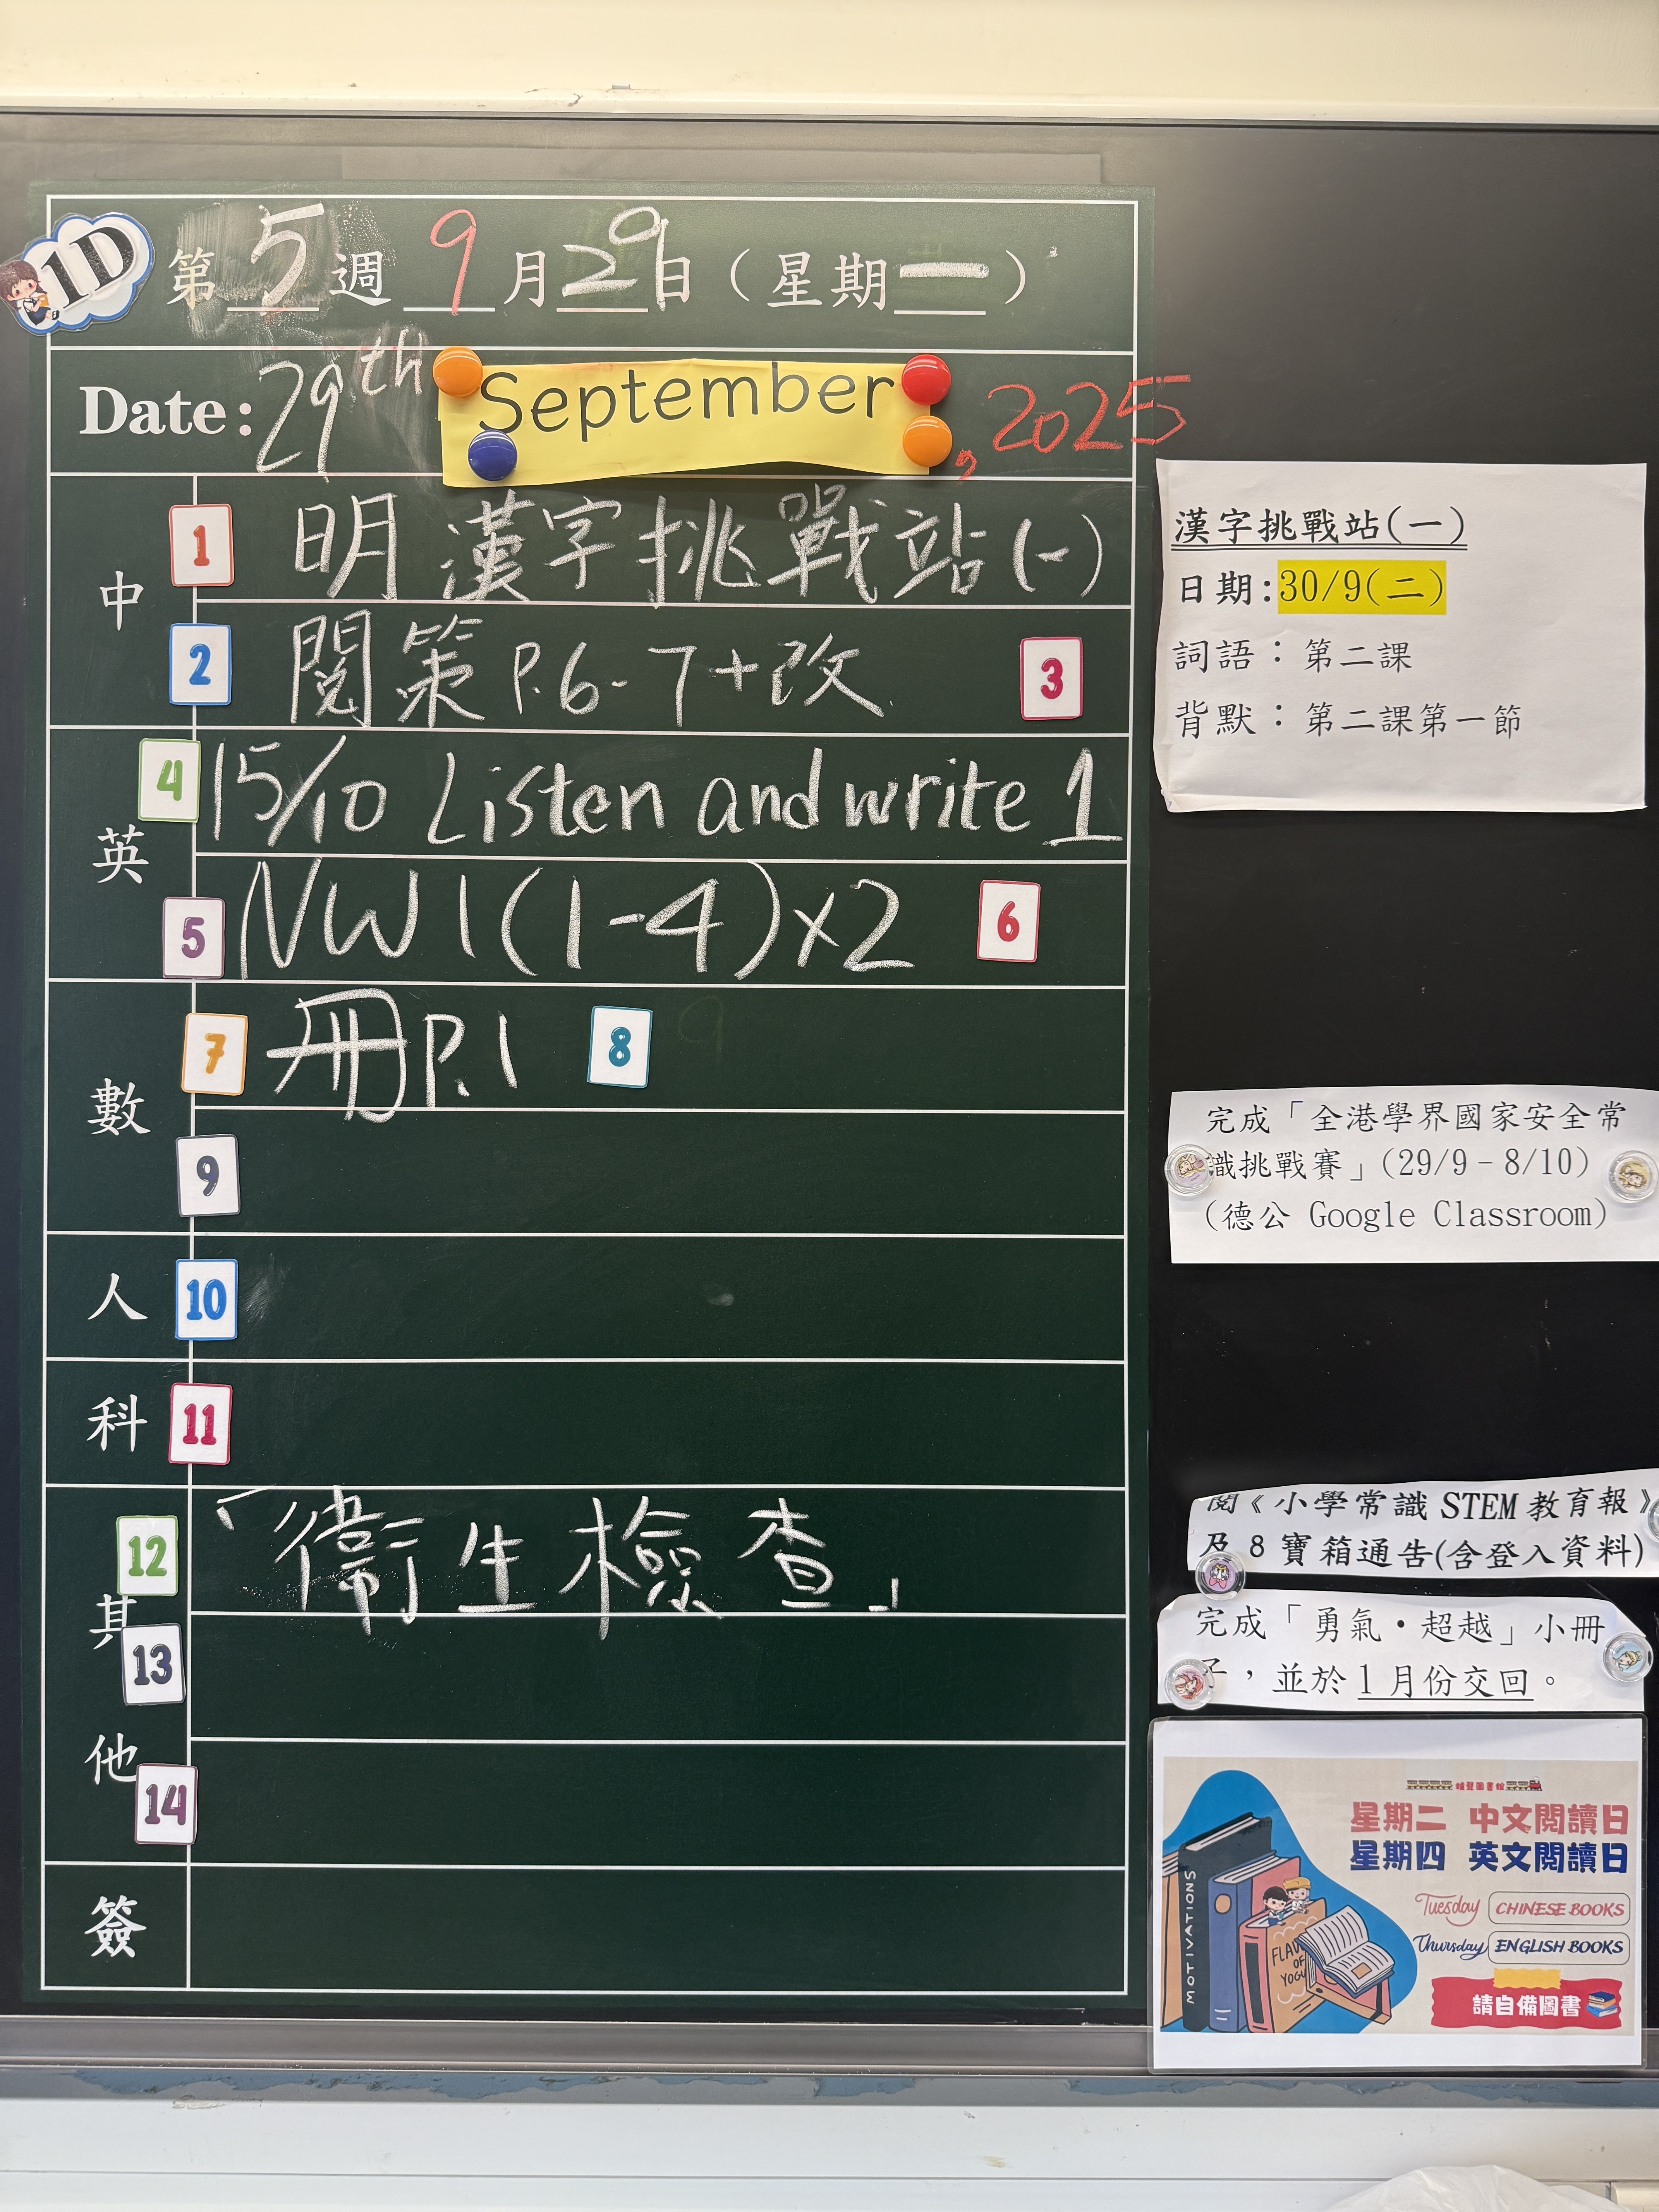 1D
第5週9月29日(星期一)
Date: 29th September, 2025
中
1 明漢字挑戰站(一)
2 閱策P.6-7+改 3
英
4 15/10 Listen and write 1
5 NW1(1-4)x2 6
數
7 冊P.1 8
9
人 10
科 11
其他
12 「衞生檢查」
13
14
簽
漢字挑戰站(一)
日期:30/9(二)
詞語:第二課
背默:第二課第一節
完成「全港學界國家安全常
識挑戰賽」(29/9-8/10)
(德公 Google Classroom)
閱《小學常識 STEM 教育報》
及 8 寶箱通告(含登入資料)
完成「勇氣・超越」小冊
子,並於1月份交回。
星期二 中文閱讀日
星期四 英文閱讀日
Tuesday CHINESE BOOKS
Thursday ENGLISH BOOKS
請自備圖書
MOTIVATIONS